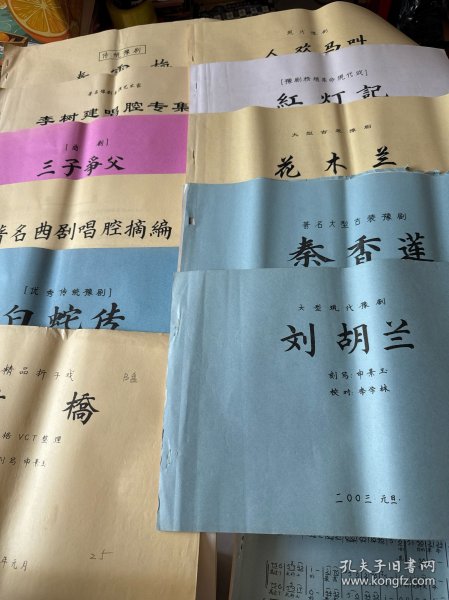 [传统豫剧]
李树建唱腔专集
三子爭父
著名曲剧唱腔摘编
[优秀传统豫剧]
白蛇传
精品折子戏
B盘
橋
VCT整理
申景玉
年元月
25
现代豫剧
人欢马叫
[豫剧移植革命现代戏]
紅灯記
大型古装豫剧
花木兰
著名大型古装豫剧
秦香莲
大型现代豫剧
刘胡兰
刻写:申景玉
校对:李学林
二00三元旦.
孔夫子旧书网
kongfz.com